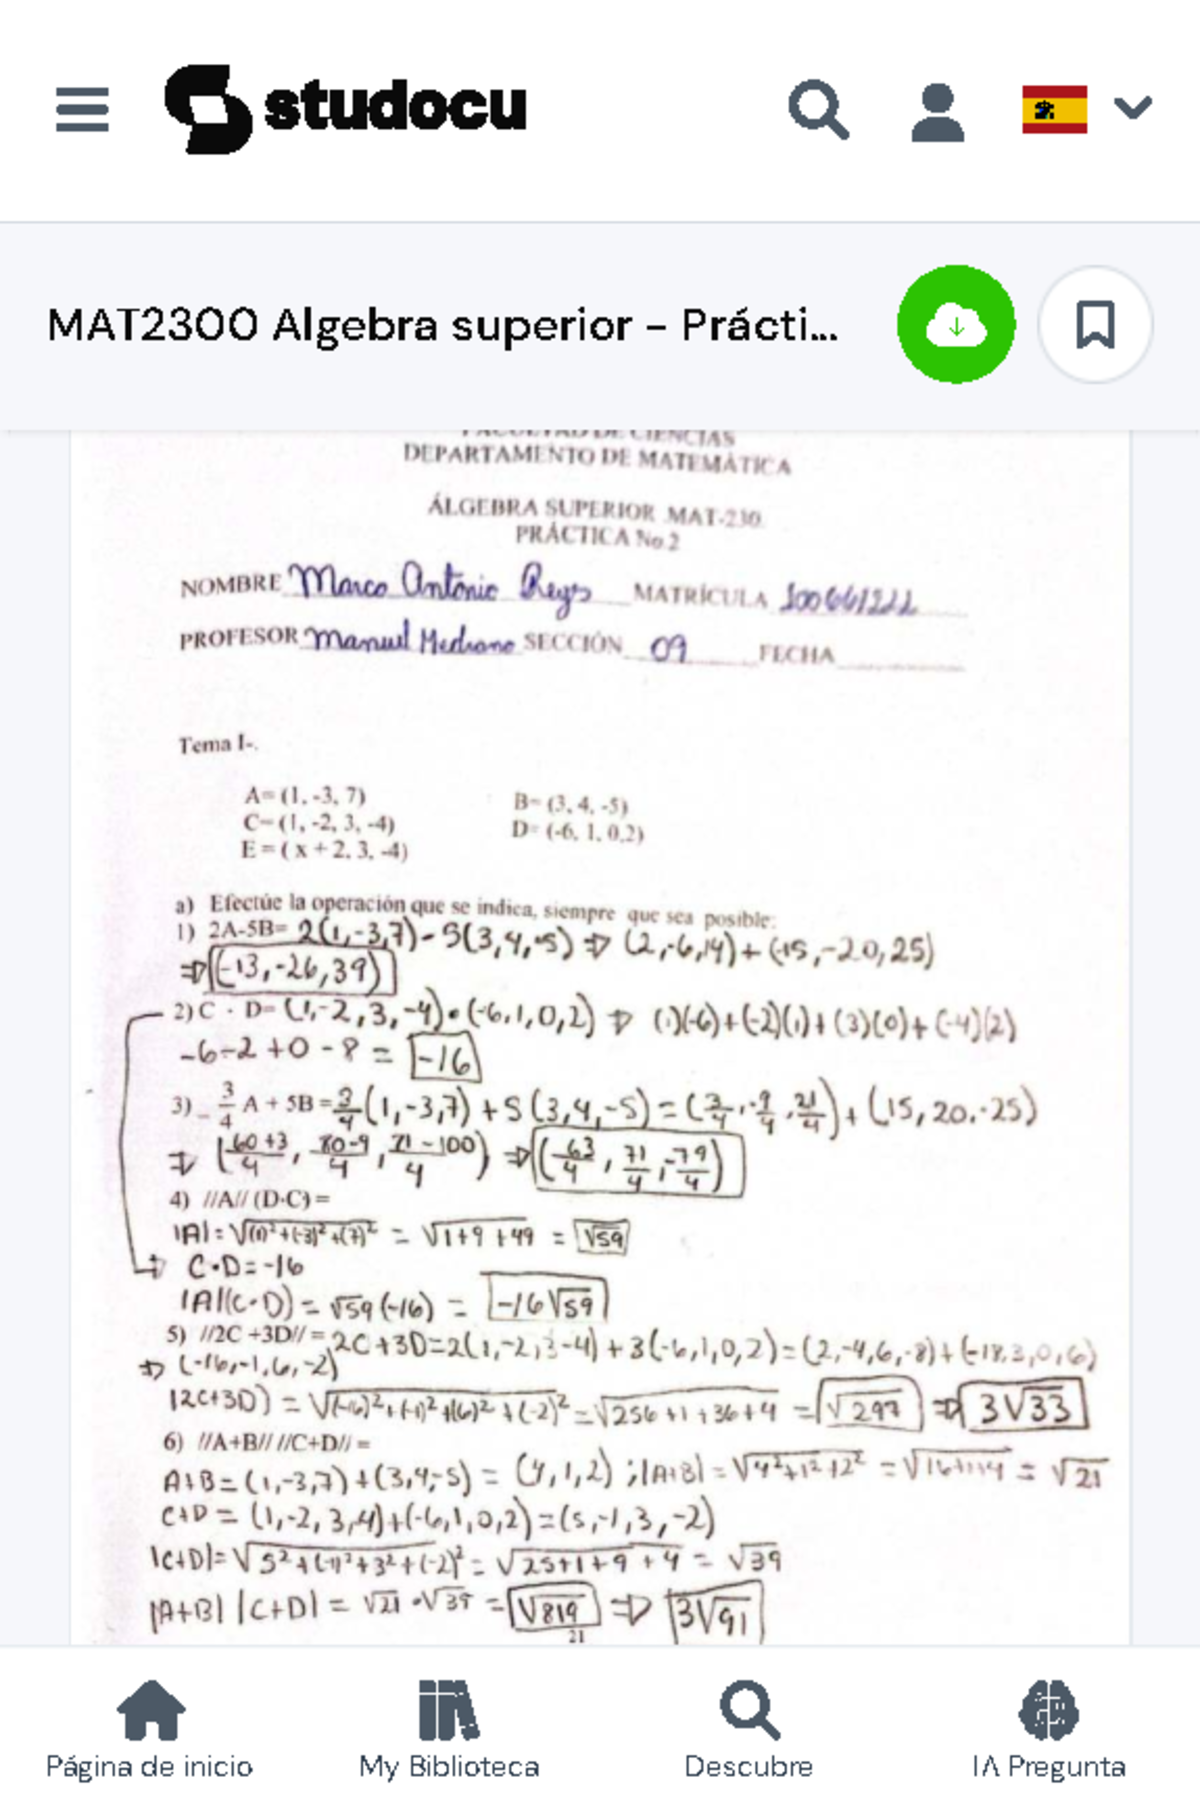 studocu
MAT2300 Algebra superior – Prácti...
FACULTAD DE CIENCIAS
DEPARTAMENTO DE MATEMÁTICA
ÁLGEBRA SUPERIOR MAT-230
PRÁCTICA No.2
NOMBRE Marco Antonio Reyes MATRÍCULA
PROFESOR Manuel Medrano SECCIÓN 09 FECHA
Tema I-.
A= (1, -3, 7) B= (3, 4, -5)
C= (1, -2, 3, -4) D= (-6, 1, 0,2)
E = ( x + 2, 3, -4)
a) Efectúe la operación que se indica, siempre que sea posible:
1) 2A-5B= 2(1,-3,7) - 5(3,4,-5) ⇒ (2,-6,14) + (-15,-20,25)
⇒ (-13,-26,39)
2) C · D= (1,-2,3,-4)•(-6,1,0,2) ⇒ (1)(-6)+(-2)(1)+(3)(0)+(-4)(2)
-6-2+0-8 = -16
3) - 3/4 A + 5B = 3/4 (1,-3,7) + 5(3,4,-5) = (3/4, -9/4, 21/4) + (15,20,-25)
⇒ (60+3/4, 80-9/4, 21-100/4) ⇒ (63/4, 71/4, -79/4)
4) //A// (D·C) =
|A| = √(1)²+(-3)²+(7)² = √1+9+49 = √59
⇒ C•D=-16
|A|(C•D) = √59 (-16) = -16√59
5) //2C +3D// = 2C+3D=2(1,-2,3-4)+3(-6,1,0,2)=(2,-4,6,-8)+(-18,3,0,6)
⇒ (-16,-1,6,-2)
|2C+3D) = √(-16)²+(-1)²+(6)²+(-2)² = √256+1+36+4 = √297 ⇒ 3√33
6) //A+B// //C+D// =
A+B = (1,-3,7)+(3,4,-5) = (4,1,2) ; |A+B| = √4²+1²+2² = √16+1+4 = √21
C+D = (1,-2,3,4)+(-6,1,0,2)=(5,-1,3,-2)
|C+D|= √5²+(-1)²+3²+(-2)² = √25+1+9+4 = √39
|A+B| |C+D| = √21 •√39 = √819 ⇒ 3√91
21
Página de inicio
My Biblioteca
Descubre
IA Pregunta